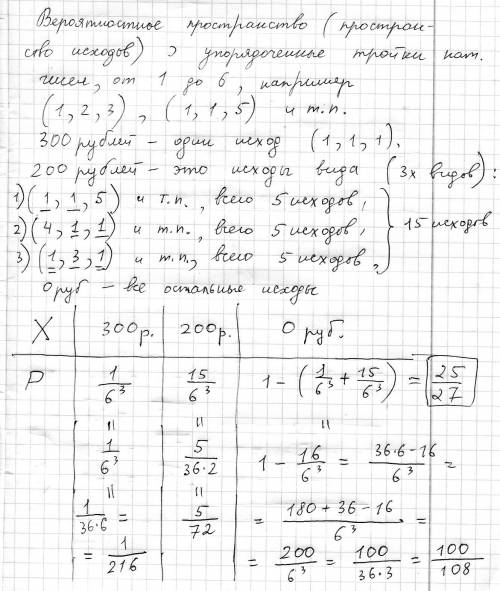 Вероятностное пространство (простран-
ство исходов) э упорядоченные тройки нат.
чисел, от 1 до 6, например
(1, 2, 3), (1, 1, 5) и т.п.
300 рублей – один исход (1, 1, 1).
200 рублей – это исходы вида (3х видов):
1) (1, 1, 5) и т.п., всего 5 исходов,
2) (4, 1, 1) и т.п., всего 5 исходов, } 15 исходов
3) (1, 3, 1) и т.п., всего 5 исходов,
0 руб – все остальные исходы
X | 300р. | 200р. | 0 руб.
P | 1/6³ | 15/6³ | 1 – (1/6³ + 15/6³) = 25/27
= | = | =
1/6³ | 5/36·2 | 1 – 16/6³ = 36·6–16/6³ =
= | =
1/36·6 = | 5/72 | = 180+36–16/6³ =
= 1/216 | = 200/6³ = 100/36·3 = 100/108